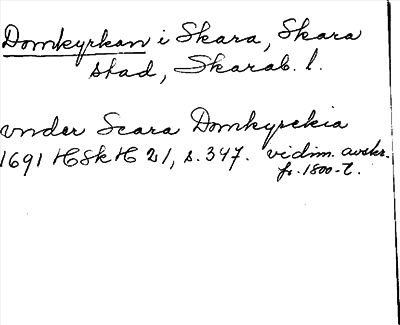 Domkyrkan i Skara, Skara
stad, Skarab. l.
vnder Scara Domkyrckia
1691 HSkH 21, s. 347. vidim. avskr.
fr. 1800-t.